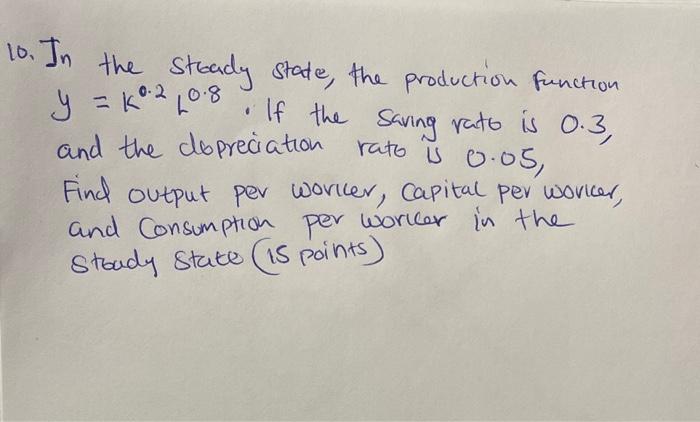 10. In the steady state, the production function
y = K^0.2 L^0.8 . If the saving rate is 0.3,
and the depreciation rate is 0.05,
Find output per worker, Capital per worker,
and Consumption per worker in the
Steady State (15 points)